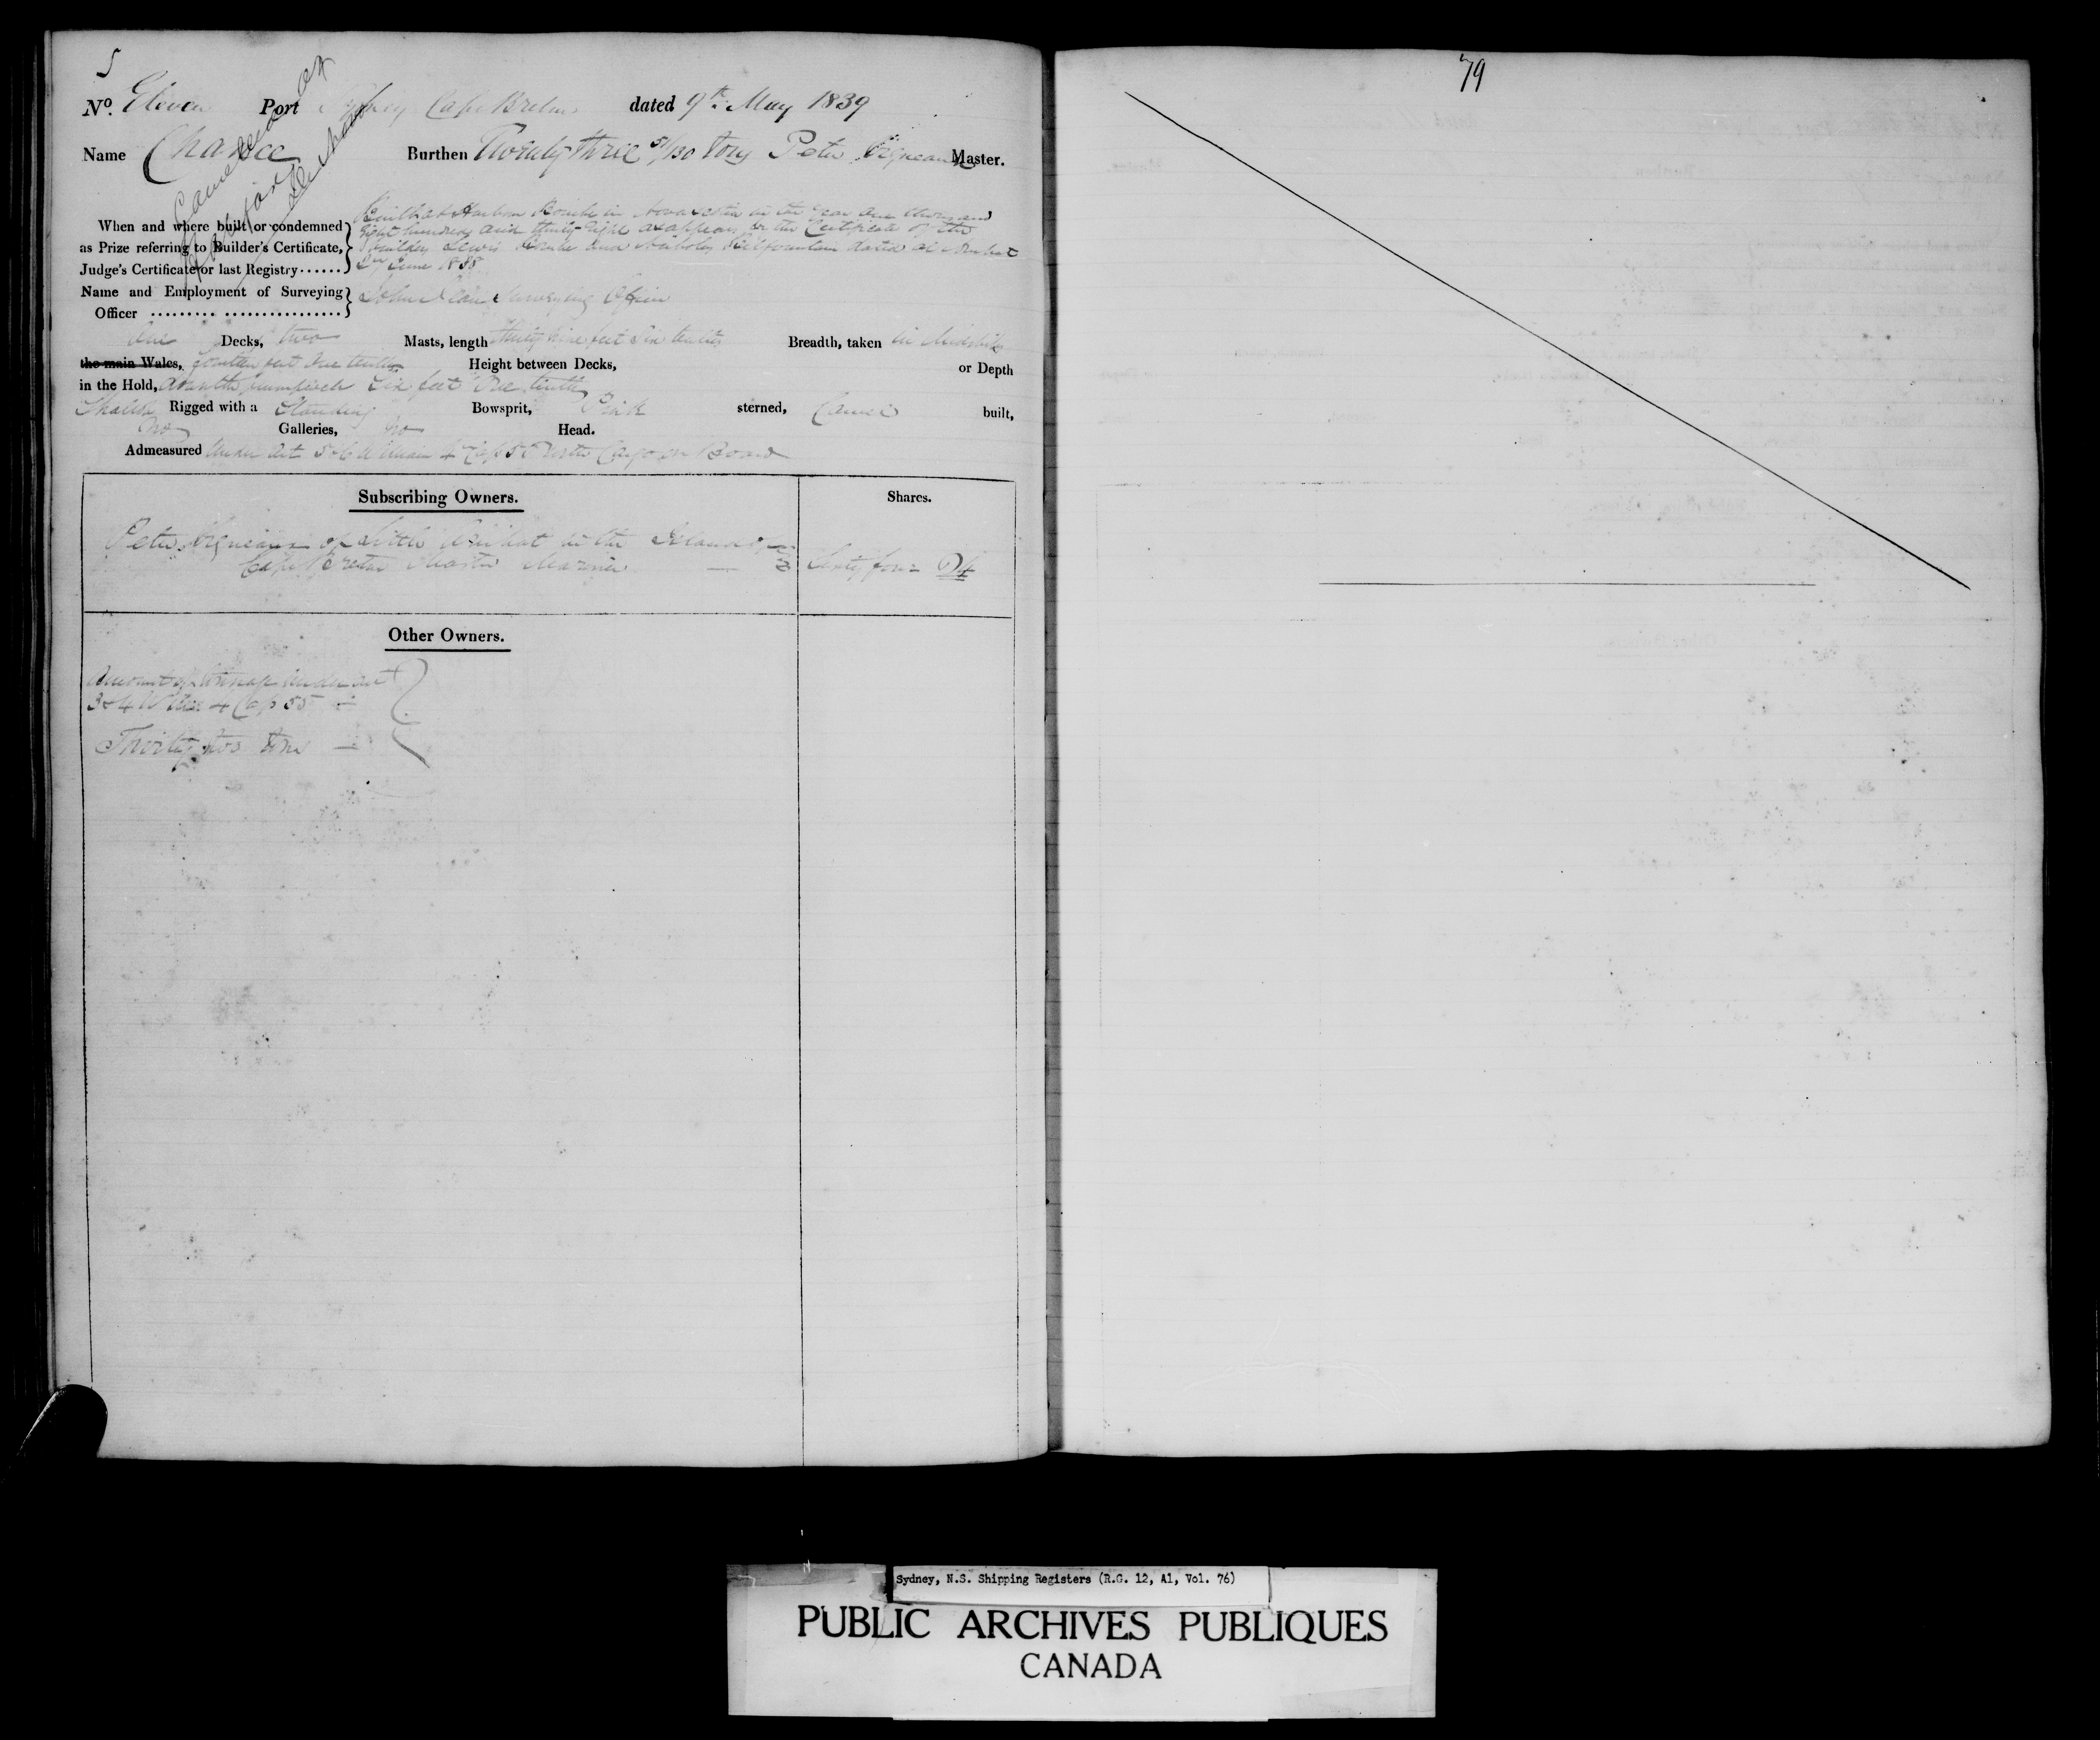 5
No. Eleven Port Sydney Cape Breton dated 9th May 1839
Name Chance Burthen Twenty three 51/130 Tons Peter Vigneaux Master.
When and where built or condemned
as Prize referring to Builder's Certificate,
Judge's Certificate or last Registry
Built at Harbour in Nova Scotia in the year One thousand
Eight hundred and thirty Eight as appears by the Certificate of the
Builders Lewis and dated at Arichat
June 1838
Name and Employment of Surveying
Officer
John Surveying Officer
One Decks, two Masts, length thirty nine feet Six tenths Breadth, taken in Midships
the main Wales, fourteen feet One tenth Height between Decks, or Depth
in the Hold, Six feet One tenth
Shallop Rigged with a Standing Bowsprit, Pink sterned, Carvel built,
no Galleries, no Head.
Admeasured Under Act 5 & 6 William 4 Cap 56 Cargo on Board
Subscribing Owners. Shares.
Peter Vigneaux of Little Arichat in the Island of
Cape Breton Master Mariner Sixty four 64
Other Owners.
Amount of Tonnage Under Act
3 & 4 Will 4 Cap 55
Thirty two tons
79
Sydney, N.S. Shipping Registers (R.G. 12, A1, Vol. 76)
PUBLIC ARCHIVES PUBLIQUES
CANADA